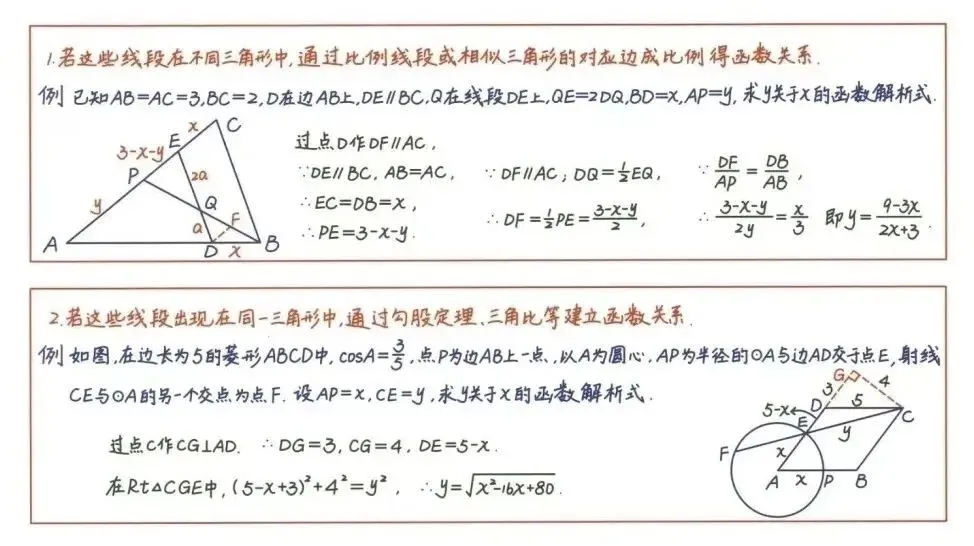 1.若这些线段在不同三角形中,通过比例线段或相似三角形的对应边成比例得函数关系.
例 已知AB=AC=3,BC=2,D在边AB上,DE∥BC,Q在线段DE上,QE=2DQ,BD=x,AP=y,求y关于x的函数解析式.
A
B
C
D
E
F
P
Q
x
3-x-y
y
2a
a
x
过点D作DF∥AC,
∵DE∥BC,AB=AC,
∴EC=DB=x,
∴PE=3-x-y.
∵DF∥AC;DQ=1/2EQ,
∴DF=1/2PE=(3-x-y)/2,
∵DF/AP=DB/AB,
∴(3-x-y)/2y=x/3 即y=(9-3x)/(2x+3).
2.若这些线段出现在同一三角形中,通过勾股定理、三角比等建立函数关系.
例 如图,在边长为5的菱形ABCD中,cosA=3/5,点P为边AB上一点,以A为圆心,AP为半径的⊙A与边AD交于点E,射线
CE与⊙A的另一个交点为点F.设AP=x,CE=y,求y关于x的函数解析式.
过点C作CG⊥AD. ∴DG=3,CG=4,DE=5-x.
在Rt△CGE中,(5-x+3)²+4²=y², ∴y=√(x²-16x+80).
G
3
4
5-x
D
5
C
E
y
F
x
A
x
P
B